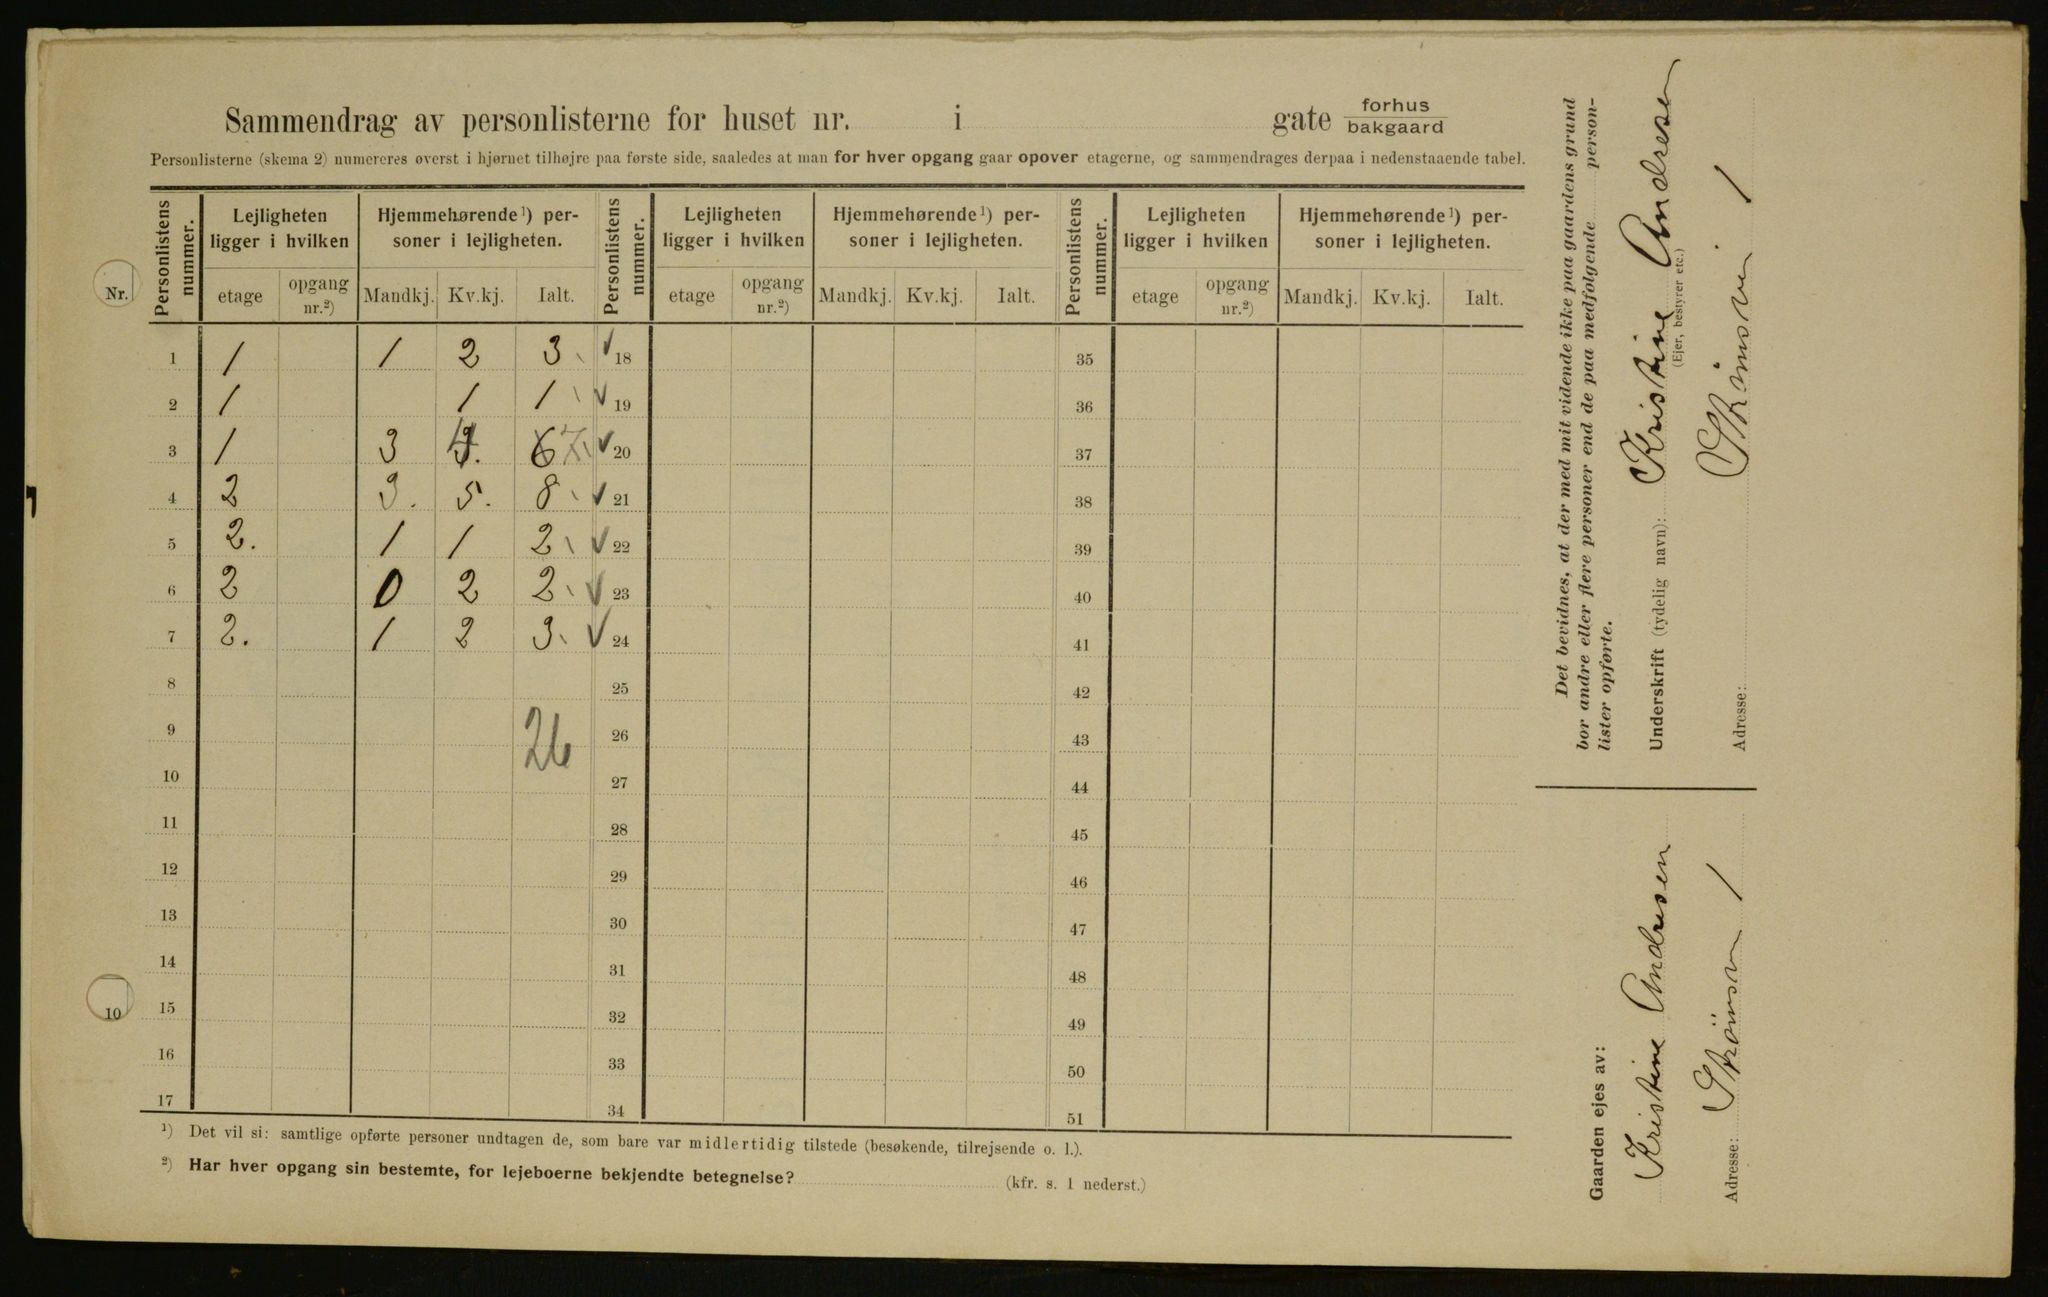 Sammendrag av personlisterne for huset nr. i gate forhus
bakgaard
Personlisterne (skema 2) numereres øverst i hjørnet tilhøjre paa første side, saaledes at man for hver opgang gaar opover etagerne, og sammendrages derpaa i nedenstaaende tabel.
Nr.
Personlistens nummer. Lejligheten ligger i hvilken Hjemmehørende¹) personer i lejligheten. Personlistens nummer. Lejligheten ligger i hvilken Hjemmehørende¹) personer i lejligheten. Personlistens nummer. Lejligheten ligger i hvilken Hjemmehørende¹) personer i lejligheten.
etage opgang nr.²) Mandkj. Kv.kj. Ialt. etage opgang nr.²) Mandkj. Kv.kj. Ialt. etage opgang nr.²) Mandkj. Kv.kj. Ialt.
1 1 1 2 3 ✓ 18 35
2 1 1 1 ✓ 19 36
3 1 3 4 6 7 ✓ 20 37
4 2 3. 5. 8 ✓ 21 38
5 2. 1 1 2 ✓ 22 39
6 2 0 2 2 ✓ 23 40
7 2. 1 2 3 ✓ 24 41
8 25 42
9 26 26 43
10 27 44
11 28 45
12 29 46
13 30 47
14 31 48
10 15 32 49
16 33 50
17 34 51
¹) Det vil si: samtlige opførte personer undtagen de, som bare var midlertidig tilstede (besøkende, tilrejsende o. l.).
²) Har hver opgang sin bestemte, for lejeboerne bekjendte betegnelse? (kfr. s. 1 nederst.)
Det bevidnes, at der med mit vidende ikke paa gaardens grund
bor andre eller flere personer end de paa medfølgende person-
lister opførte.
Underskrift (tydelig navn): Kristine Andresen
(Ejer, bestyrer etc.)
Adresse: 1
Gaarden ejes av:
Kristine Andresen
Adresse: 1